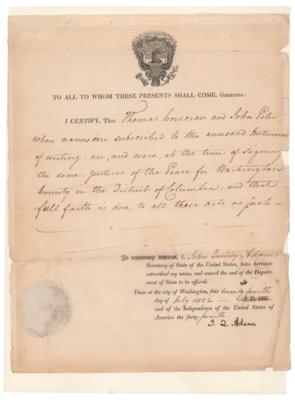 TO ALL TO WHOM THESE PRESENTS SHALL COME, GREETING:
I CERTIFY, That Thomas Corcoran and John Peter
whose names are subscribed to the annexed Instrument
of writing are, and were, at the time of signing
the same, Justices of the Peace for Washington
County in the District of Columbia and that
full faith is due to all their acts as such
In testimony whereof, I, John Quincy Adams
Secretary of State of the United States, have hereunto
subscribed my name, and caused the seal of the Depart-
ment of State to be affixed.
Done at the city of Washington, this twenty fourth
day of July 1822 A. D. 182
and of the Independence of the United States of
America the forty-
J. Q. Adams